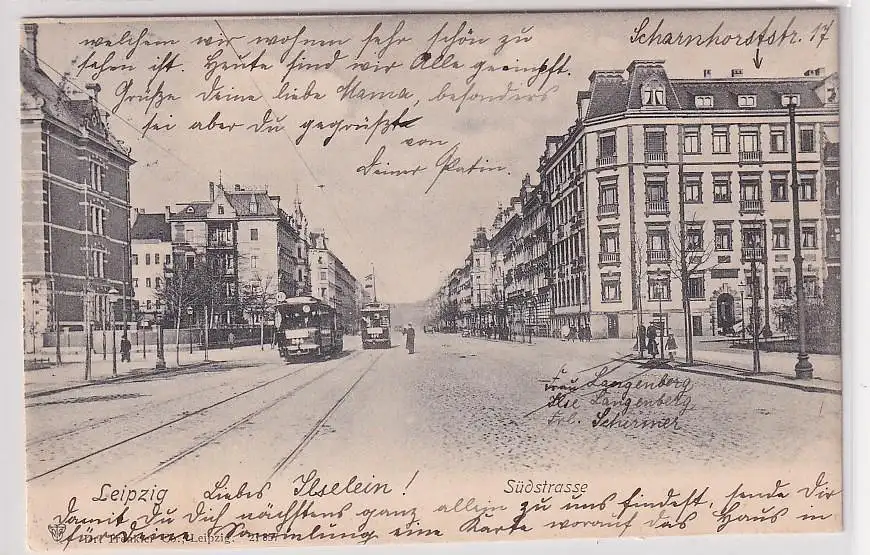 welchem wir wohnen sehr schön zu
sehen ist. Heute sind wir Alle geeimpft.
Grüße Deine liebe Mama, besonders
sei aber Du gegrüßt
von
Deiner Patin.
Scharnhorststr. 17
Frau Langenberg
Ilse Langenberg,
Frl. Schirmer
Leipzig
Südstrasse
Liebes Ilselein!
Damit Du Dich nächstens ganz allein zu uns findest, sende Dir
für Deine Sammlung eine Karte worauf das Haus in
Dr. Trenkler Co., Leipzig. 2189